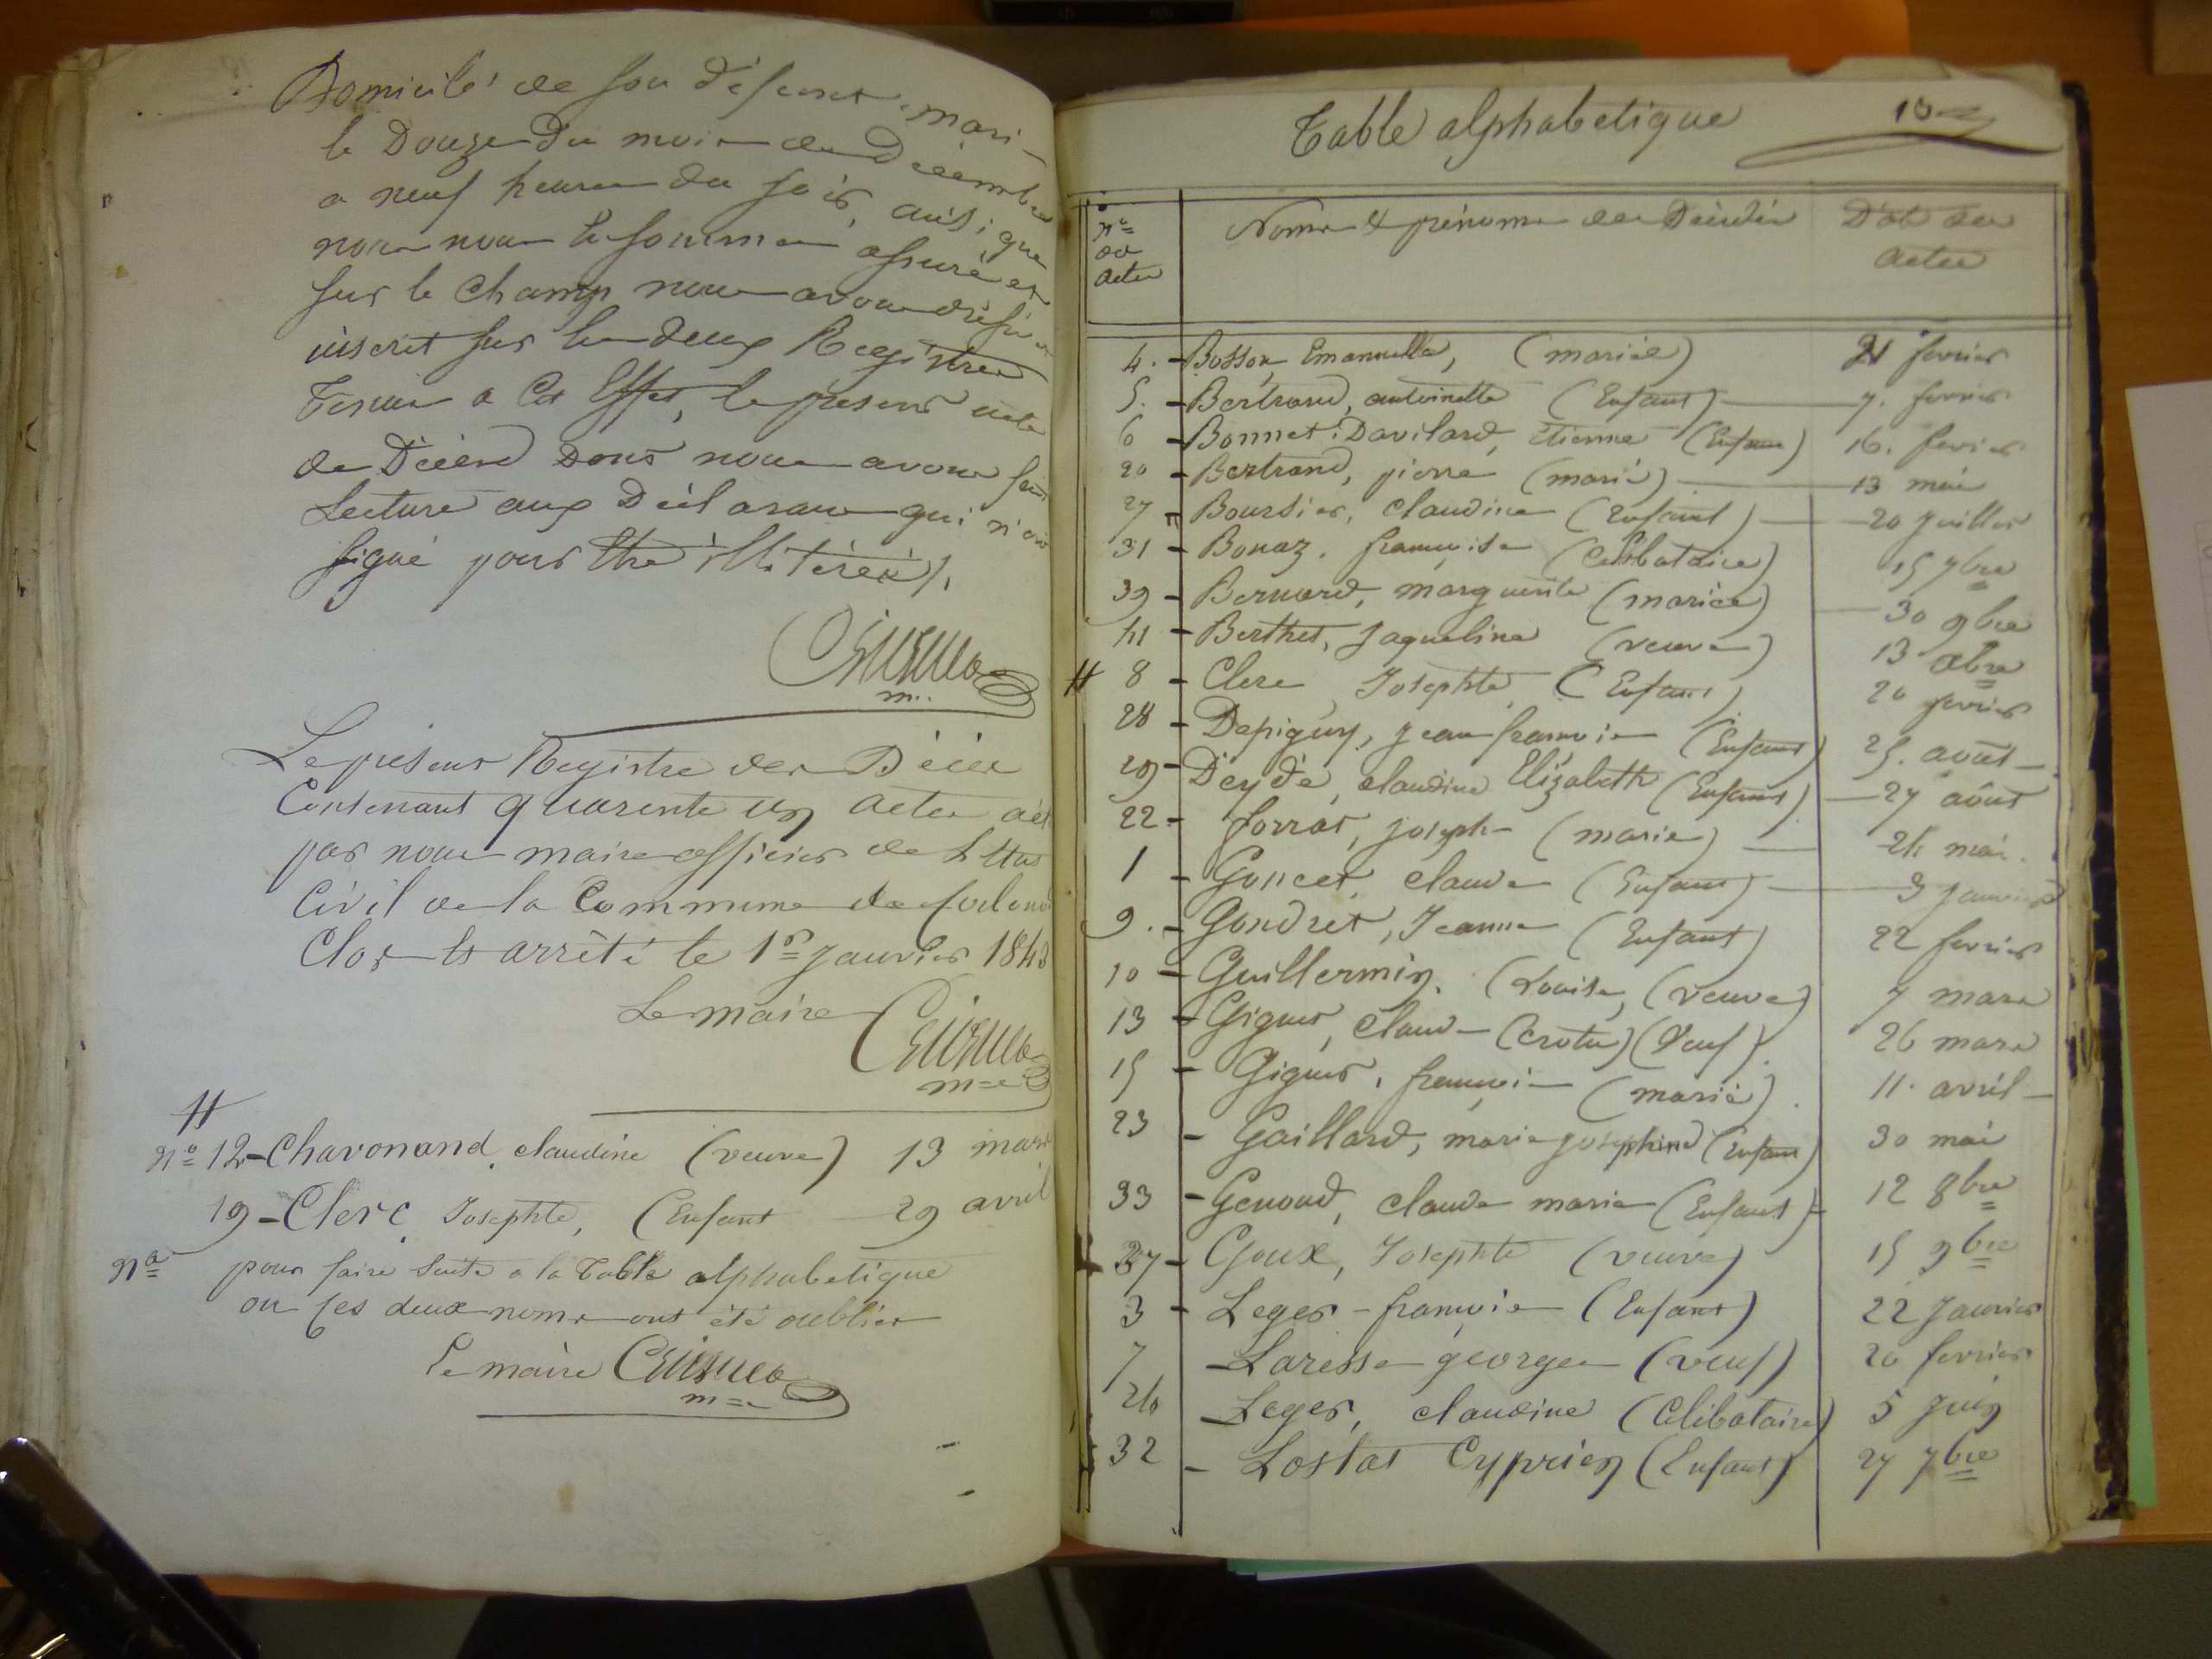 Domicilé de son défunt mari
le Douze du mois de Décembre
a neuf heures du soir, ainsi que
nous nous en sommes assuré et
sur le champ nous avons
inscrit sur les deux Registres
Tenus a Cet Effet, le présent acte
de Décès Dont nous avons fait
Lecture aux Déclarans qui n'ont
signé pour être illitérés/.
m..
Le présent Registre des Décès
Contenant quarente un actes
par nous maire officier de L'Etat
Civil de la Commune de
Clos et arrêté le 1er Janvier 184
Le maire
m=e
#
No 12 - Chavonand, claudine (veuve) 13 mars
19 - Clerc, Josephte, (Enfant 29 avril
Na pour faire suite a la Table alphabetique
ou ses deux noms ont été oubliés
Le maire
m=e
Table alphabetique
Nos des actes
Noms & prénoms des Décédés
Date des actes
4. - Bosson, Emanuelle, (mariée) février
5. - Bertrand, antoinette (Enfant) 7. février
6 - Bonnet-Davilard, Etienne (Enfant) 16. fevrier
20 - Bertrand, pierre (marié) 13 mai
27 - Boursier, claudine (Enfant) 20 Juillet
31 - Bonaz, françoise (Celibataire) 15 7bre
39 - Bernard, marguerite (mariée) 30 9bre
41 - Berthet, Jaqueline (veuve) 13 Xbre
# 8 - Clerc, Josephte, (Enfant) 20 fevrier
28 - Depigny, Jean françois (Enfant) 25. août
29 - Deydé, claudine Elizabeth (Enfant) 27 août
22 - forrat, joseph (marié) 24 mai.
1 - Goncet, claude (Enfant) 3 Janvier
9. - Gondret, Jeanne (Enfant) 22 fevrier
10 - Guillermin, (Louise, (veuve) 7 mars
13 - Giguet, Claude (crotu) (Veuf) 26 mars
15 - Giguet, françois (marié) 11. avril
23 - Gaillard, marie josephine (Enfant) 30 mai
33 - Genoud, claude marie (Enfant) 12 8bre
37 - Goux, Josephte (veuve) 15 9bre
3 - Leger - françois (Enfant) 22 Janvier
7 - Laresse georges (veuf) 20 fevrier
24 - Leger, claudine (Celibataire) 5 Juin
32 - Lostat Cyprien (Enfant) 27 7bre